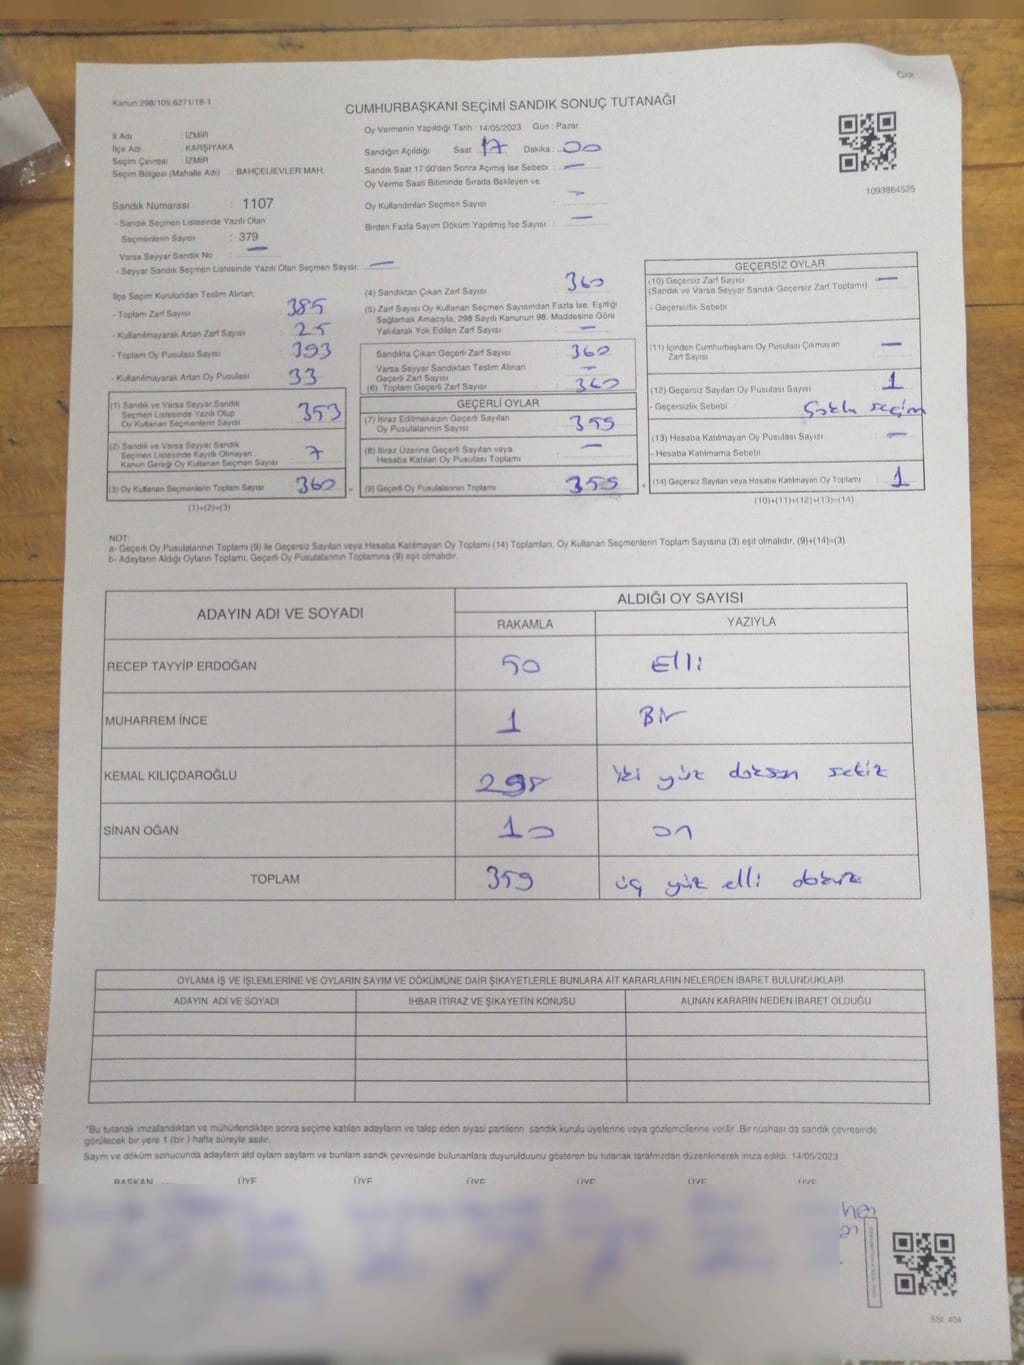 Kanun:298/105;6271/18-1
CUMHURBAŞKANI SEÇİMİ SANDIK SONUÇ TUTANAĞI
İl Adı : İZMİR
İlçe Adı : KARŞIYAKA
Seçim Çevresi : İZMİR
Seçim Bölgesi (Mahalle Adı) BAHÇELİEVLER MAH.
Sandık Numarası : 1107
- Sandık Seçmen Listesinde Yazılı Olan
Seçmenlerin Sayısı : 379
Varsa Seyyar Sandık No : —
- Seyyar Sandık Seçmen Listesinde Yazılı Olan Seçmen Sayısı: —
Oy Vermenin Yapıldığı Tarih : 14/05/2023 Gün : Pazar
Sandığın Açıldığı Saat : 17 Dakika : 00
Sandık Saat 17:00'den Sonra Açılmış İse Sebebi : —
Oy Verme Saati Bitiminde Sırada Bekleyen ve
Oy Kullandırılan Seçmen Sayısı : —
Birden Fazla Sayım Döküm Yapılmış İse Sayısı : —
1093864525
İlçe Seçim Kurulundan Teslim Alınan;
- Toplam Zarf Sayısı : 385
- Kullanılmayarak Artan Zarf Sayısı : 25
- Toplam Oy Pusulası Sayısı : 393
- Kullanılmayarak Artan Oy Pusulası : 33
(1) Sandık ve Varsa Seyyar Sandık
Seçmen Listesinde Yazılı Olup
Oy Kullanan Seçmenlerin Sayısı : 353
(2) Sandık ve Varsa Seyyar Sandık
Seçmen Listesinde Kayıtlı Olmayan
Kanun Gereği Oy Kullanan Seçmen Sayısı : 7
(3) Oy Kullanan Seçmenlerin Toplam Sayısı : 360 =
(1)+(2)=(3)
(4) Sandıktan Çıkan Zarf Sayısı : 360
(5) Zarf Sayısı Oy Kullanan Seçmen Sayısından Fazla İse, Eşitliği
Sağlamak Amacıyla, 298 Sayılı Kanunun 98. Maddesine Göre
Yakılarak Yok Edilen Zarf Sayısı : —
Sandıkta Çıkan Geçerli Zarf Sayısı : 360
Varsa Seyyar Sandıktan Teslim Alınan
Geçerli Zarf Sayısı : —
(6) Toplam Geçerli Zarf Sayısı : 360
GEÇERLİ OYLAR
(7) İtiraz Edilmeksizin Geçerli Sayılan
Oy Pusulalarının Sayısı : 359
(8) İtiraz Üzerine Geçerli Sayılan veya
Hesaba Katılan Oy Pusulası Toplamı : —
(9) Geçerli Oy Pusulalarının Toplamı : 359 +
GEÇERSİZ OYLAR
(10) Geçersiz Zarf Sayısı : —
(Sandık ve Varsa Seyyar Sandık Geçersiz Zarf Toplamı)
- Geçersizlik Sebebi
(11) İçinden Cumhurbaşkanı Oy Pusulası Çıkmayan
Zarf Sayısı : —
(12) Geçersiz Sayılan Oy Pusulası Sayısı : 1
- Geçersizlik Sebebi : Çoklu seçim
(13) Hesaba Katılmayan Oy Pusulası Sayısı : —
- Hesaba Katılmama Sebebi
(14) Geçersiz Sayılan veya Hesaba Katılmayan Oy Toplamı : 1
(10)+(11)+(12)+(13)=(14)
NOT:
a- Geçerli Oy Pusulalarının Toplamı (9) ile Geçersiz Sayılan veya Hesaba Katılmayan Oy Toplamı (14) Toplamları, Oy Kullanan Seçmenlerin Toplam Sayısına (3) eşit olmalıdır. (9)+(14)=(3)
b- Adayların Aldığı Oyların Toplamı, Geçerli Oy Pusulalarının Toplamına (9) eşit olmalıdır.
ADAYIN ADI VE SOYADI ALDIĞI OY SAYISI
RAKAMLA YAZIYLA
RECEP TAYYİP ERDOĞAN 50 Elli
MUHARREM İNCE 1 Bir
KEMAL KILIÇDAROĞLU 298 iki yüz doksan sekiz
SİNAN OĞAN 10 on
TOPLAM 359 üç yüz elli dokuz
OYLAMA İŞ VE İŞLEMLERİNE VE OYLARIN SAYIM VE DÖKÜMÜNE DAİR ŞİKAYETLERLE BUNLARA AİT KARARLARIN NELERDEN İBARET BULUNDUKLARI
ADAYIN ADI VE SOYADI İHBAR İTİRAZ VE ŞİKAYETİN KONUSU ALINAN KARARIN NEDEN İBARET OLDUĞU
*Bu tutanak imzalandıktan ve mühürlendikten sonra seçime katılan adayların ve talep eden siyasi partilerin sandık kurulu üyelerine veya gözlemcilerine verilir .Bir nüshası da sandık çevresinde
görülecek bir yere 1 (bir ) hafta süreyle asılır.
Sayım ve döküm sonucunda adayların aldı oyların sayıların ve bunların sandk çevresinde bulunanlara duyurulduunu gösteren bu tutanak tarafmzdan düzenlenerek imza edildi. 14/05/2023
BAŞKAN ÜYE ÜYE ÜYE ÜYE ÜYE ÜYE